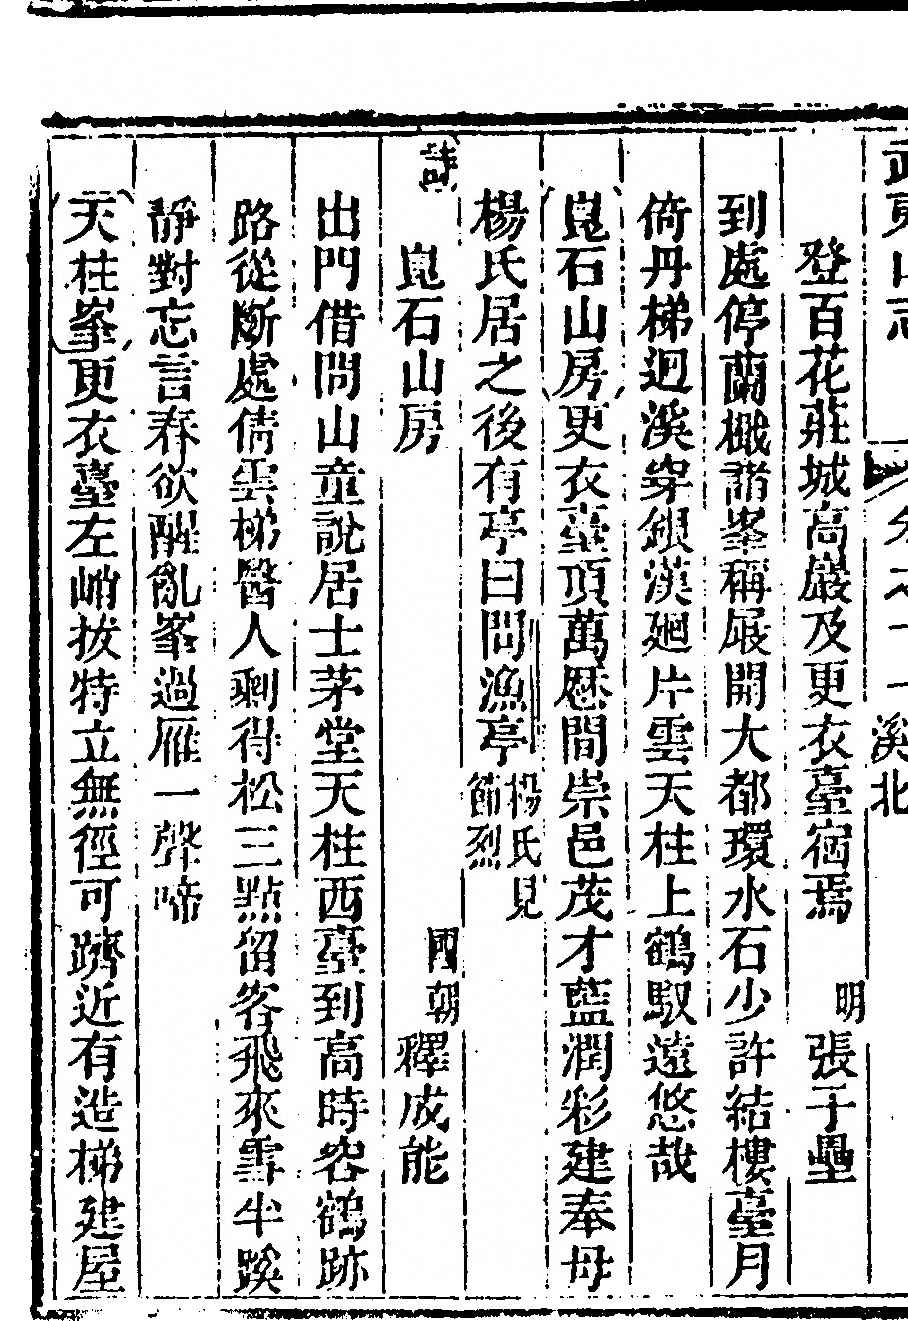 武夷山志 卷之 溪北
登百花莊城高巖及更衣臺宿焉 明 張于壘
到處停蘭檝諸峯稱展開大都環水石少許結樓臺月
倚丹梯迥溪穿銀漢廻片雲天柱上鶴馭遠悠哉
嵬石山房更衣臺頂萬厯間崇邑茂才藍潤彩建奉母
楊氏居之後有亭曰問漁亭楊氏見節烈
詩 嵬石山房 國朝 釋成能
出門借問山童說居士茅堂天柱西臺到高時容鶴跡
路從斷處倩雲梯醫人剩得松三點留客飛來雪半蹊
靜對忘言春欲醒亂峯過雁一聲啼
天柱峯更衣臺左峭拔特立無徑可躋近有造梯建屋